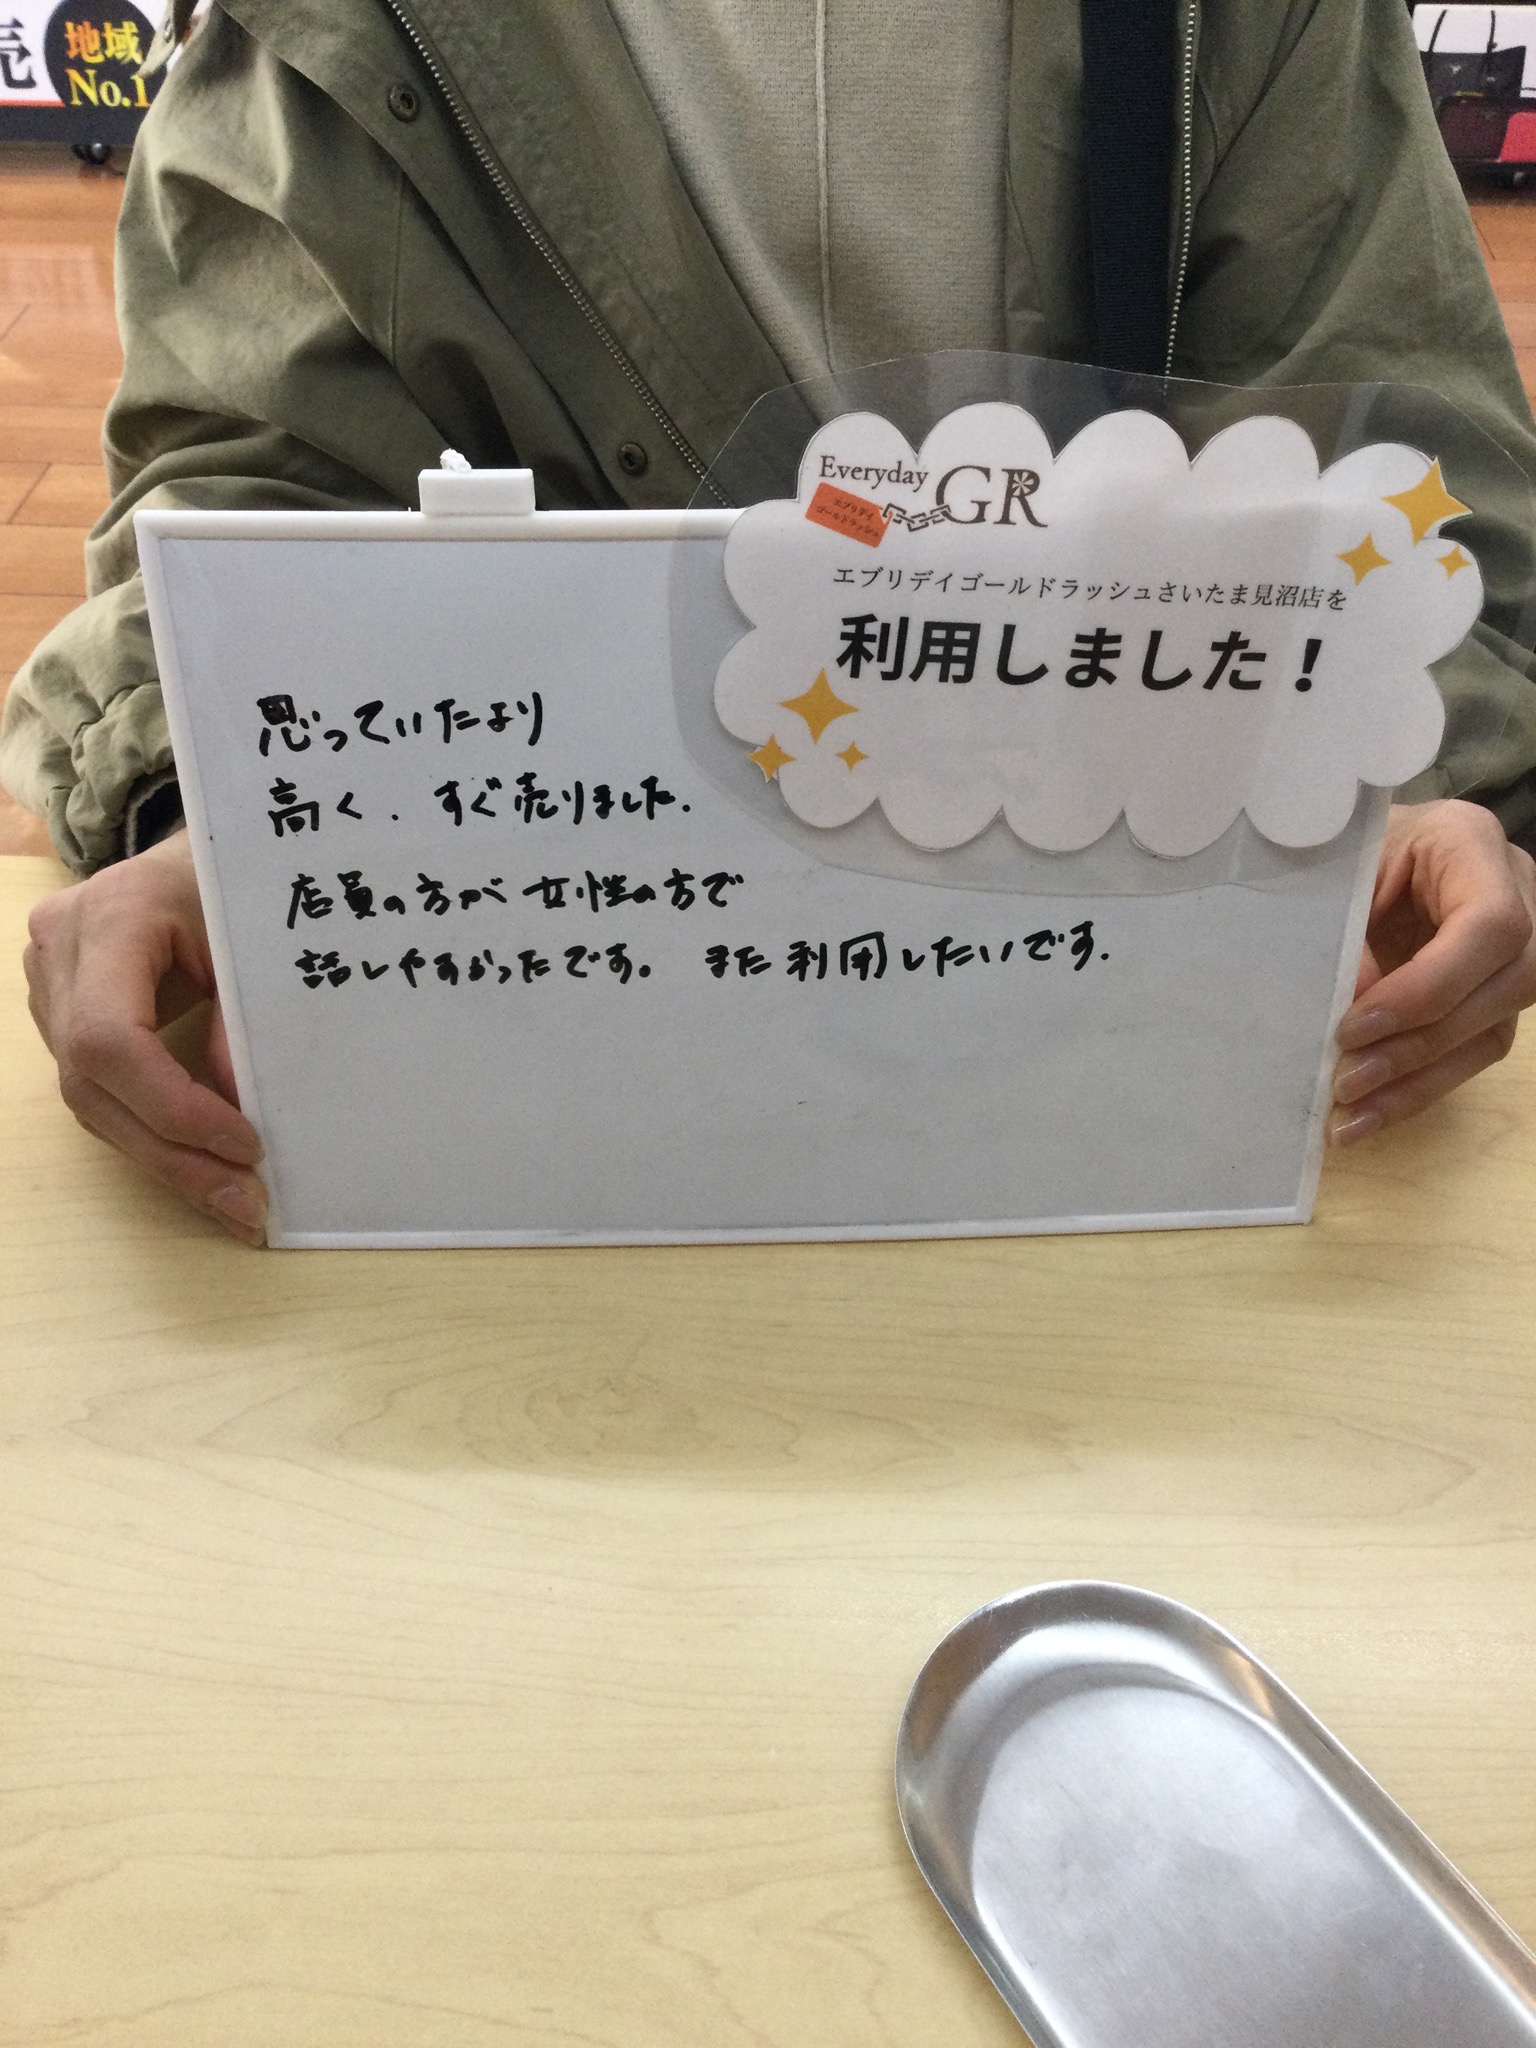 売
地域
No.1
Everyday
GR
エブリデイ
ゴールドラッシュ
エブリデイゴールドラッシュさいたま見沼店を
利用しました！
思っていたより
高く、すぐ売りました.
店員の方が女性の方で
話しやすかったです。また利用したいです.